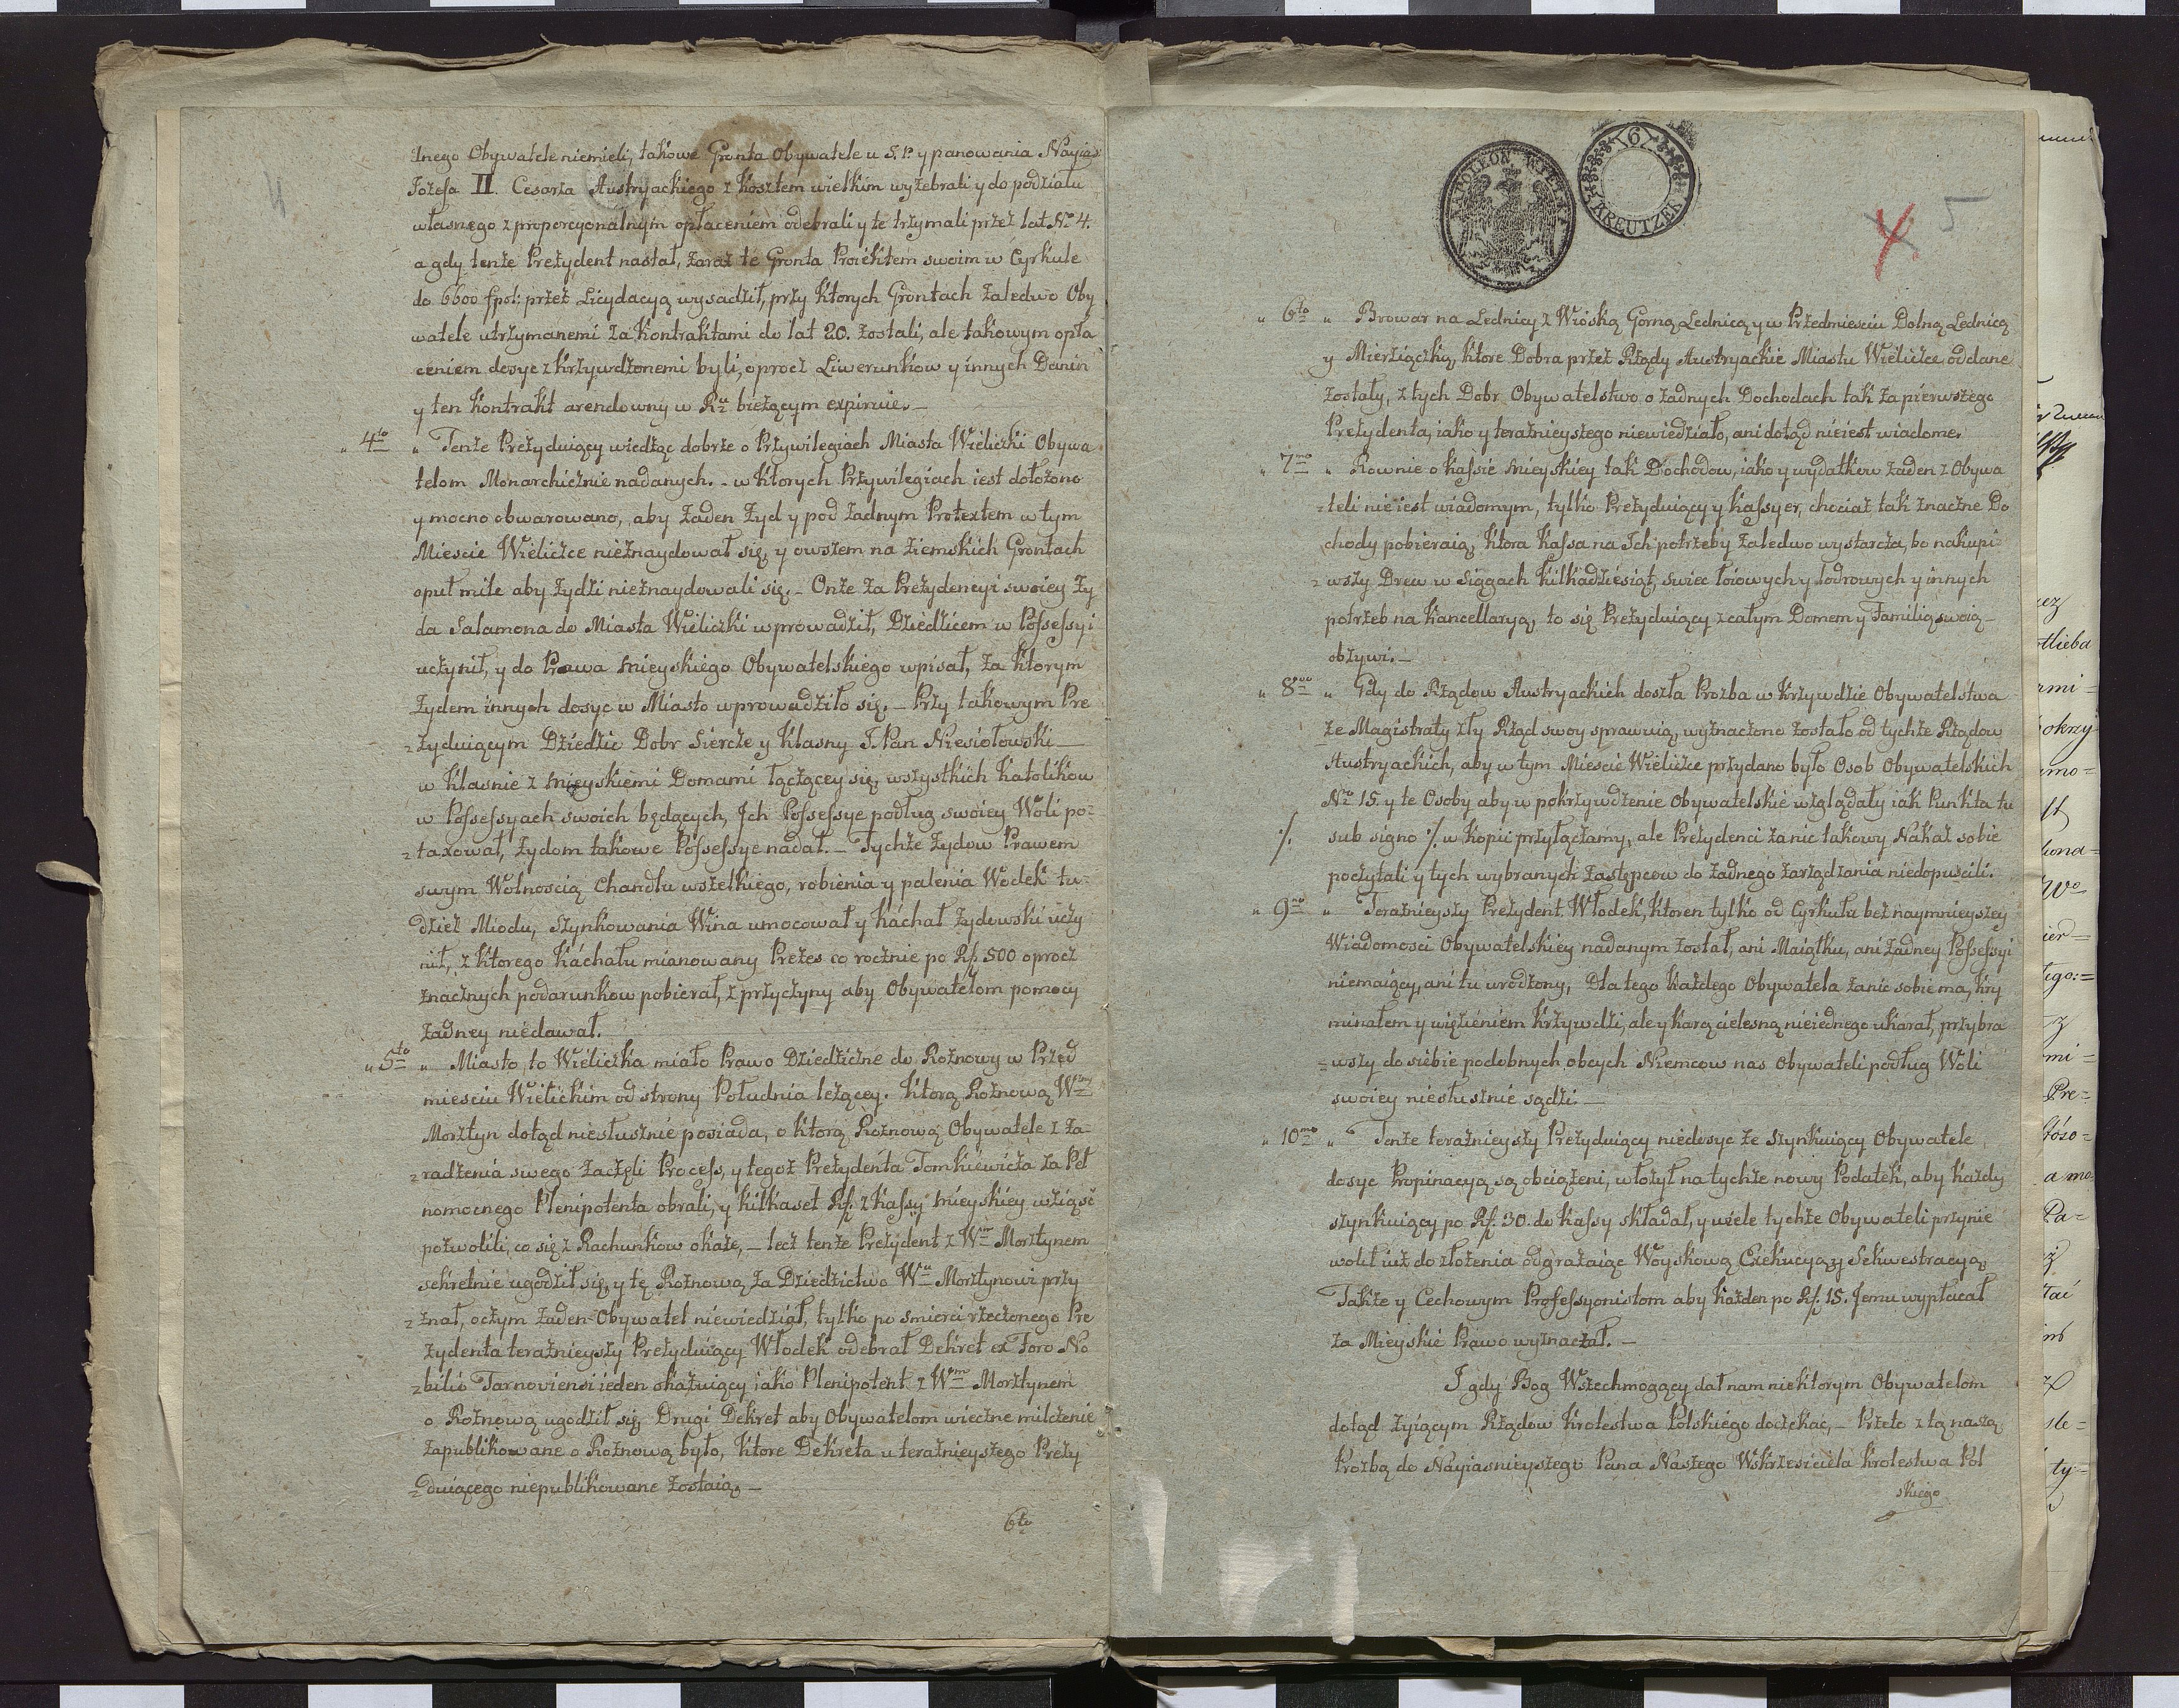 4
dnego Obywatele niemieli, takowe Gronta Obywatele u S. P. y panowania Nayias
Jozefa II. Cesarza Austryackiego z kosztem wielkim wyżebrali y do podziału
własnego z proporcyonalnym opłaceniem odebrali y te trzymali przez lat Nro 4.
a gdy tenże Prezydent nastał, zaraz te Gronta Proiektem swoim w Cyrkule
do 6600 fpol: przez Licydacyą wysadził, przy ktorych Grontach zaledwo Oby
watele utrzymanemi za kontraktami do lat 20. zostali, ale takowym opła
ceniem dosyc z krzywdzonemi byli, oprocz Liwerunkow y innych Danin
y ten kontrakt arendowny w Ru bieżącym expiruie. —
„ 4to „ Tenże Prezyduiący wiedząc dobrze o Przywilegiach Miasta Wieliczki Obywa
telom Monarchicznie nadanych. - w ktorych Przywilegiach iest dołożono
y mocno obwarowano, aby żaden Zyd y pod żadnym Protextem w tym
Miescie Wieliczce nieznaydował się, y owszem na ziemskich Grontach
o puł mile aby żydzi nieznaydowali się. - Onże za Prezydencyi swoiey Zy
da Salamona do Miasta Wieliczki wprowadził, Dziedzicem w Possessyi
uczynił, y do Prawa mieyskiego Obywatelskiego wpisał, za ktorym
Zydem innych dosyc w Miasto wprowadziło się. - Przy takowym Pre
=zyduiącym Dziedzic Dobr Siercze y Klasny J. Pan Niesiołowski —
w Klasnie z mieyskiemi Domami łączącey się, wszystkich katolikow
w Possessyach swoich będących, Jch Possessye podług swoiey Woli po=
=taxował, żydom takowe Possessye nadał. - Tychże żydow Prawem
swym Wolnoscią Chandlu wszelkiego, robienia y palenia Wodek tu=
dzież Miodu, Szynkowania Wina umocował y Káchał żydowski uczy
nił, z ktorego Káchału mianowany Prezes co rocznie po Rf. 500 oprocz
znacznych podarunkow pobierał, z przyczyny aby Obywatelom pomocy
żadney niedawał.
„ 5to „ Miasto to Wieliczka miało Prawo Dziedziczne do Rożnowy w Przed
miesciu Wielickim od strony Południa leżącey. ktorą Rożnową Wny
Morsztyn dotąd niesłusznie posiada, o ktorą Rożnową Obywatele z za=
=radzenia swego zaczęli Process, y tegoż Prezydenta Tomkiewicza za Peł
nomocnego Plenipotenta obrali, y kilkaset Rf. z kassy mieyskiey wziąsć
pozwolili, co się z Rachunkow okaże, - lecz tenże Prezydent z Wm Morsztynem
sekretnie ugodził się, y tę Rożnową za Dziedzictwo Wu Morsztynowi przy
=znał, oczym żaden Obywatel niewiedział, tylko po smierci rzeczonego Pre
zydenta teraznieyszy Prezyduiący Włodek odebrał Dekret ex Foro No
=bilio Tarnoviensi ieden okazuiący iako Plenipotent z Wm Morsztynem
o Rożnową ugodził się, Drugi Dekret aby Obywatelom wieczne milczenie
zapublikowane o Rożnową było, ktore Dekreta u teraznieyszego Prezy
=duiącego niepublikowane zostaią. —
6to
NAPOLEON WIELKI
6 KREUTZER
4
5
„ 6to „ Browar na Lednicy z Wioską Gorną Lednicą y w Przedmiesciu Dolną Lednicą
y Mierziączką, ktore Dobra przez Rządy Austryackie Miastu Wieliczce oddane
zostały, z tych Dobr Obywatelstwo o żadnych Dochodach tak za pierwszego
Prezydenta, iako y teraznieyszego niewiedziało, ani dotąd nieiest wiadome.
„ 7mo „ Rownie o kassie mieyskiey tak Dochodow, iako y wydatkow żaden z Obywa
=teli nieiest wiadomym, tylko Prezyduiący y kassyer, chociaż tak znaczne Do
chody pobieraią, ktora kassa na Jch potrzeby zaledwo wystarcza, bo nakupi=
=wszy Drew w Siągach kilkadziesiąt, swiec łoiowych y lodrowych y innych
potrzeb na kancellaryą, to się Prezyduiący z całym Domem y Familią swoią
obżywi. —
„ 8vo „ Gdy do Rządow Austryackich doszła Prozba w krzywdzie Obywatelstwa
że Magistraty zły Rząd swoy sprawuią, wyznaczono zostało od tychże Rządow
Austryackich, aby w tym Miescie Wieliczce przydano było Osob Obywatelskich
Nro 15. y te Osoby aby w pokrzywdzenie Obywatelskie wzglądały iak Punkta tu
⁒ sub signo ⁒ w kopii przyłączamy, ale Prezydenci zanic takowy Nakaz sobie
poczytali y tych wybranych zastępcow do żadnego zarządzania niedopuscili.
„ 9no „ Teraznieyszy Prezydent Włodek, ktoren tylko od Cyrkułu bez naymnieyszey
Wiadomosci Obywatelskiey nadanym został, ani Maiątku, ani żadney Possessyi
niemaiący, ani tu urodzony, Dla tego każdego Obywatela zanic sobie ma, kry
minałem y więzieniem krzywdzi, ale y karą cielesną nieiednego ukarał, przybra
=wszy do siebie podobnych obcych Niemcow nas Obywateli podług Woli
swoiey niesłusznie sądzi. —
„ 10mo „ Tenże teraznieyszy Prezyduiący niedosyc że szynkuiący Obywatele
dosyc Propinacyą są obciążeni, włożył na tychże nowy Podatek, aby każdy
szynkuiący po Rf. 30. do kassy składał, y wiele tychże Obywateli przynie
wolił iuż do złożenia odgrażaiąc Woyskową Exekucyą, y Sekwestracyą,
Także y Cechowym Professyonistom aby każden po Rf. 15. Jemu wypłacał
za Mieyskie Prawo wyznaczał. —
I gdy Bog Wszechmogący dał nam niektorym Obywatelom
dotąd żyiącym Rządow krolestwa Polskiego doczekac, - Przeto z tą naszą
Prozbą do Nayiasnieyszego Pana Naszego Wskrzesiciela krolestwa Pol
skiego